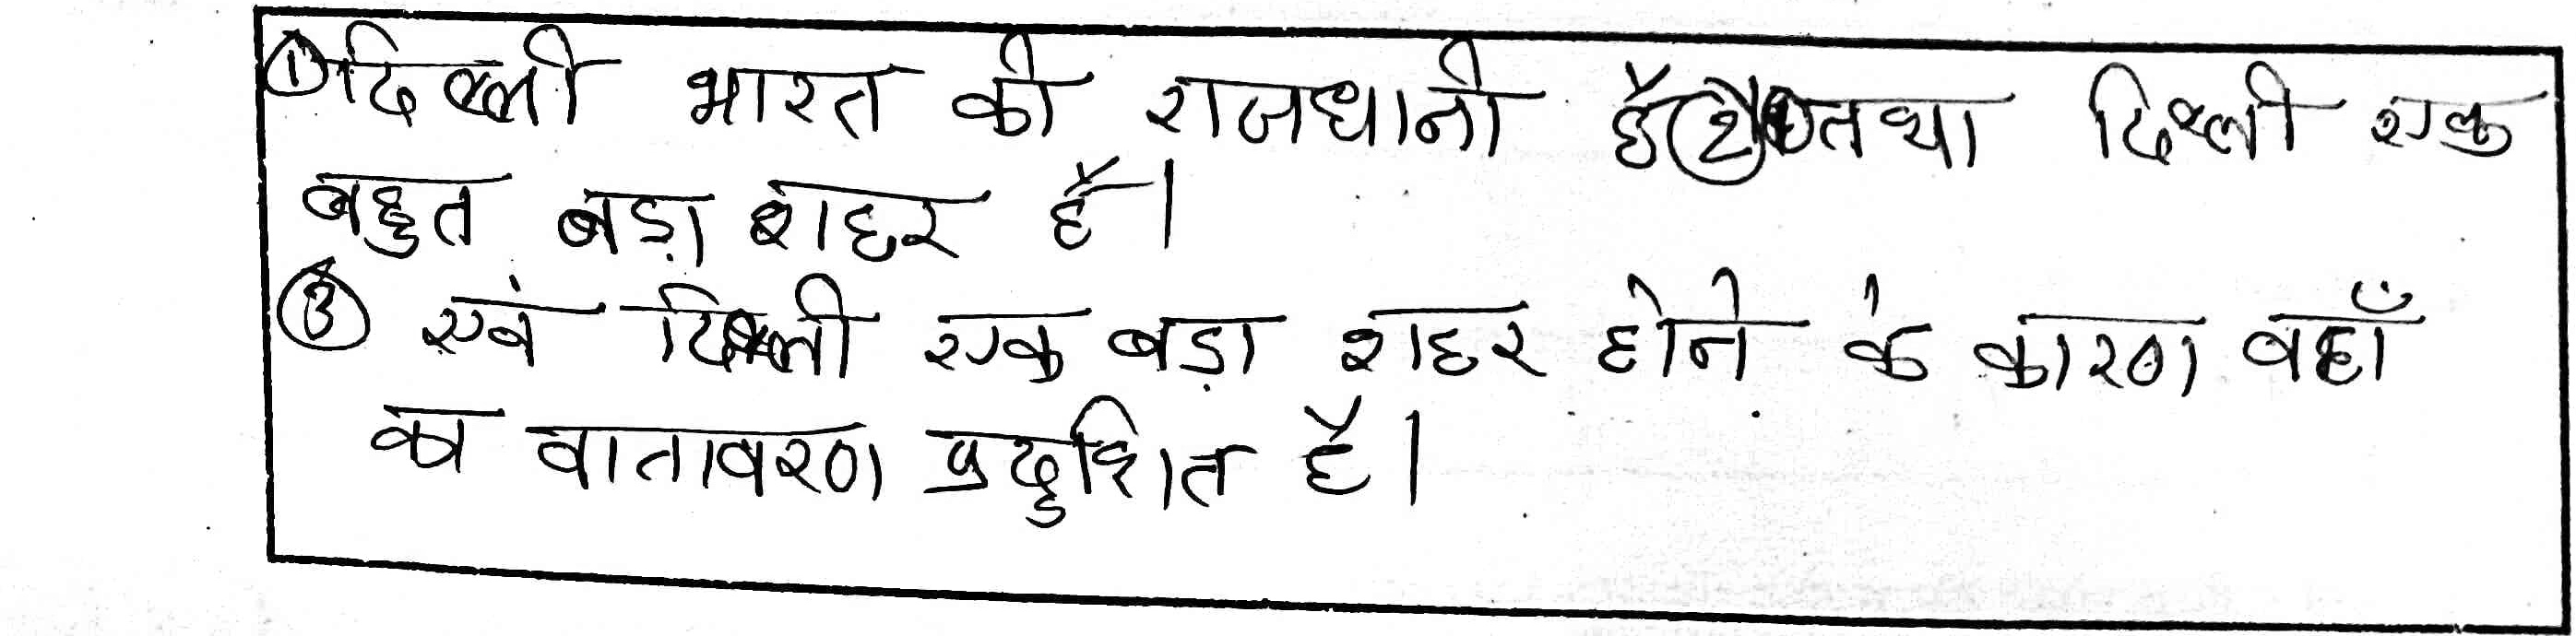 ① दिल्ली भारत की राजधानी है ② तथा दिल्ली एक
बहुत बड़ा शहर है।
③ एवं दिल्ली एक बड़ा शहर होने के कारण वहाँ
का वातावरण प्रदुशित है।